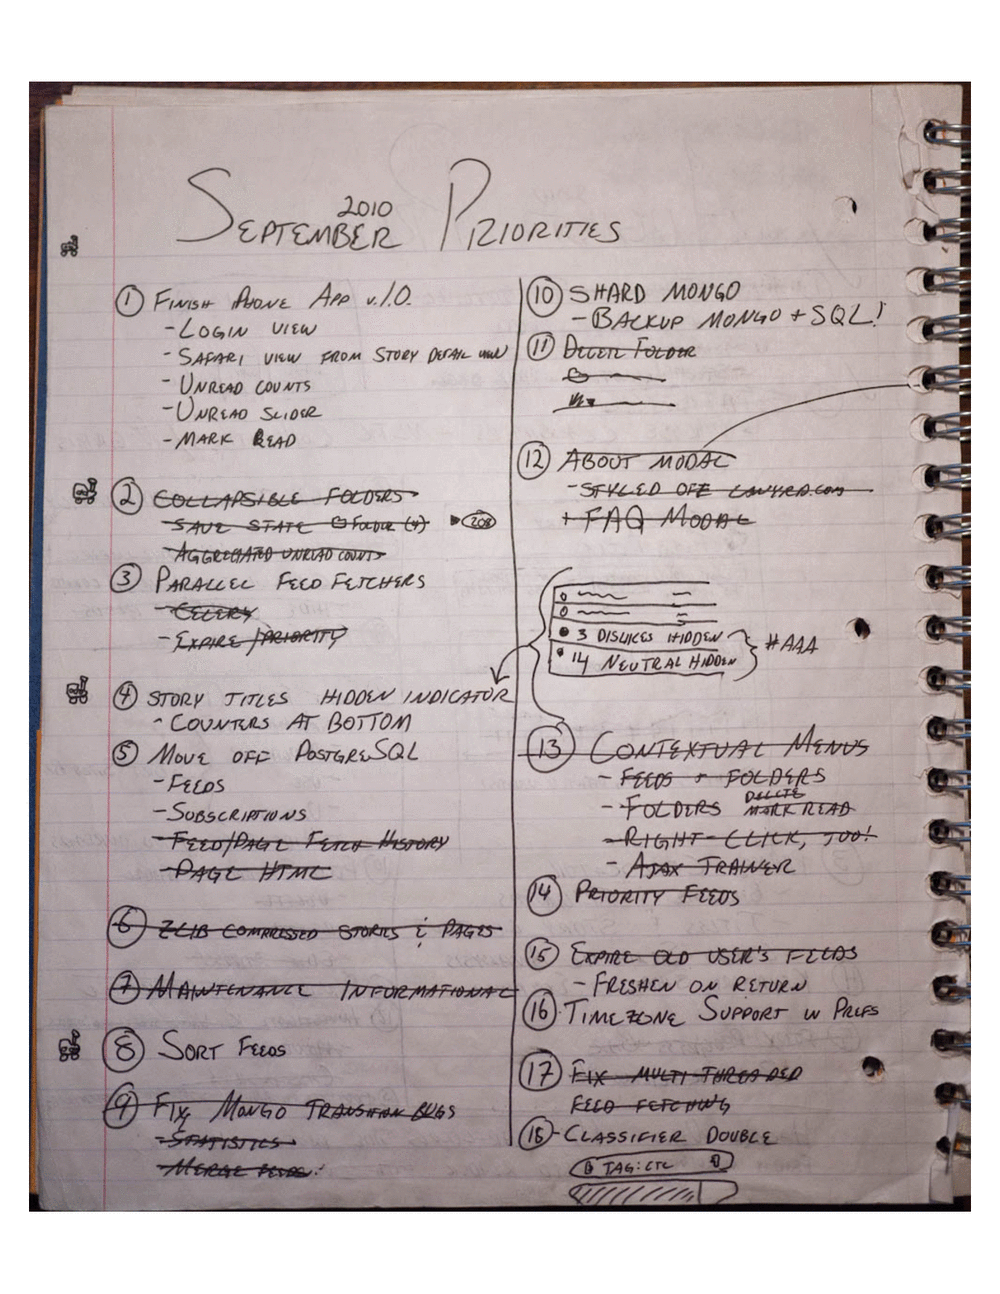 SEPTEMBER 2010 PRIORITIES
① FINISH PHONE APP v.1.0.
- LOGIN VIEW
- SAFARI VIEW FROM STORY DETAIL VIEW
- UNREAD COUNTS
- UNREAD SLIDER
- MARK READ
② COLLAPSIBLE FOLDERS
- SAVE STATE FOLDER (4) 208
- AGGREGATED UNREAD COUNTS
③ PARALLEL FEED FETCHERS
- CELERY
- EXPIRE/PRIORITY
④ STORY TITLES HIDDEN INDICATOR
- COUNTERS AT BOTTOM
⑤ MOVE OFF POSTGRESQL
- FEEDS
- SUBSCRIPTIONS
- FEED/PAGE FETCH HISTORY
- PAGE HTML
⑥ ZLIB COMPRESSED STORIES & PAGES
⑦ MAINTENANCE INFORMATIONAL
⑧ SORT FEEDS
⑨ FIX MONGO TRANSITION BUGS
- STATISTICS
- MERGE FEEDS.
⑩ SHARD MONGO
- BACKUP MONGO + SQL!
⑪ DELETE FOLDER
⑫ ABOUT MODAL
- STYLED OFF LAWYRD.COM
+ FAQ MODAL
3 DISLIKES HIDDEN
14 NEUTRAL HIDDEN
#AAA
⑬ CONTEXTUAL MENUS
- FEEDS + FOLDERS
- FOLDERS DELETE MARK READ
- RIGHT-CLICK, TOO!
- AJAX TRAINER
⑭ PRIORITY FEEDS
⑮ EXPIRE OLD USER'S FEEDS
- FRESHEN ON RETURN
⑯ TIMEZONE SUPPORT IN PREFS
⑰ FIX MULTI THREADED
FEED FETCHING
⑱ - CLASSIFIER DOUBLE
TAG: ETC